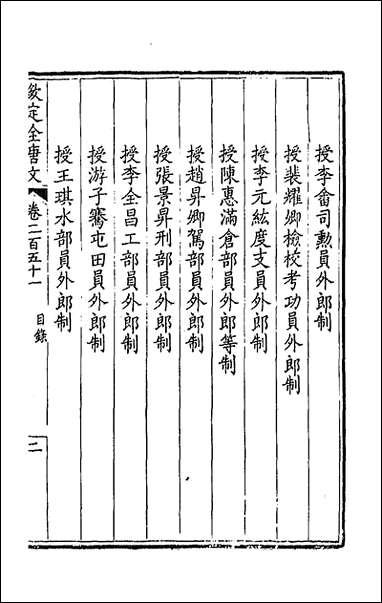 授李畬司勲員外郎制
授裴耀卿檢校考功員外郎制
授李元紘度支員外郎制
授陳惠滿倉部員外郎等制
授趙昇卿駕部員外郎制
授張景昇刑部員外郎制
授李全昌工部員外郎制
授游子騫屯田員外郎制
授王琪水部員外郎制
欽定全唐文
卷二百五十一
目錄
二